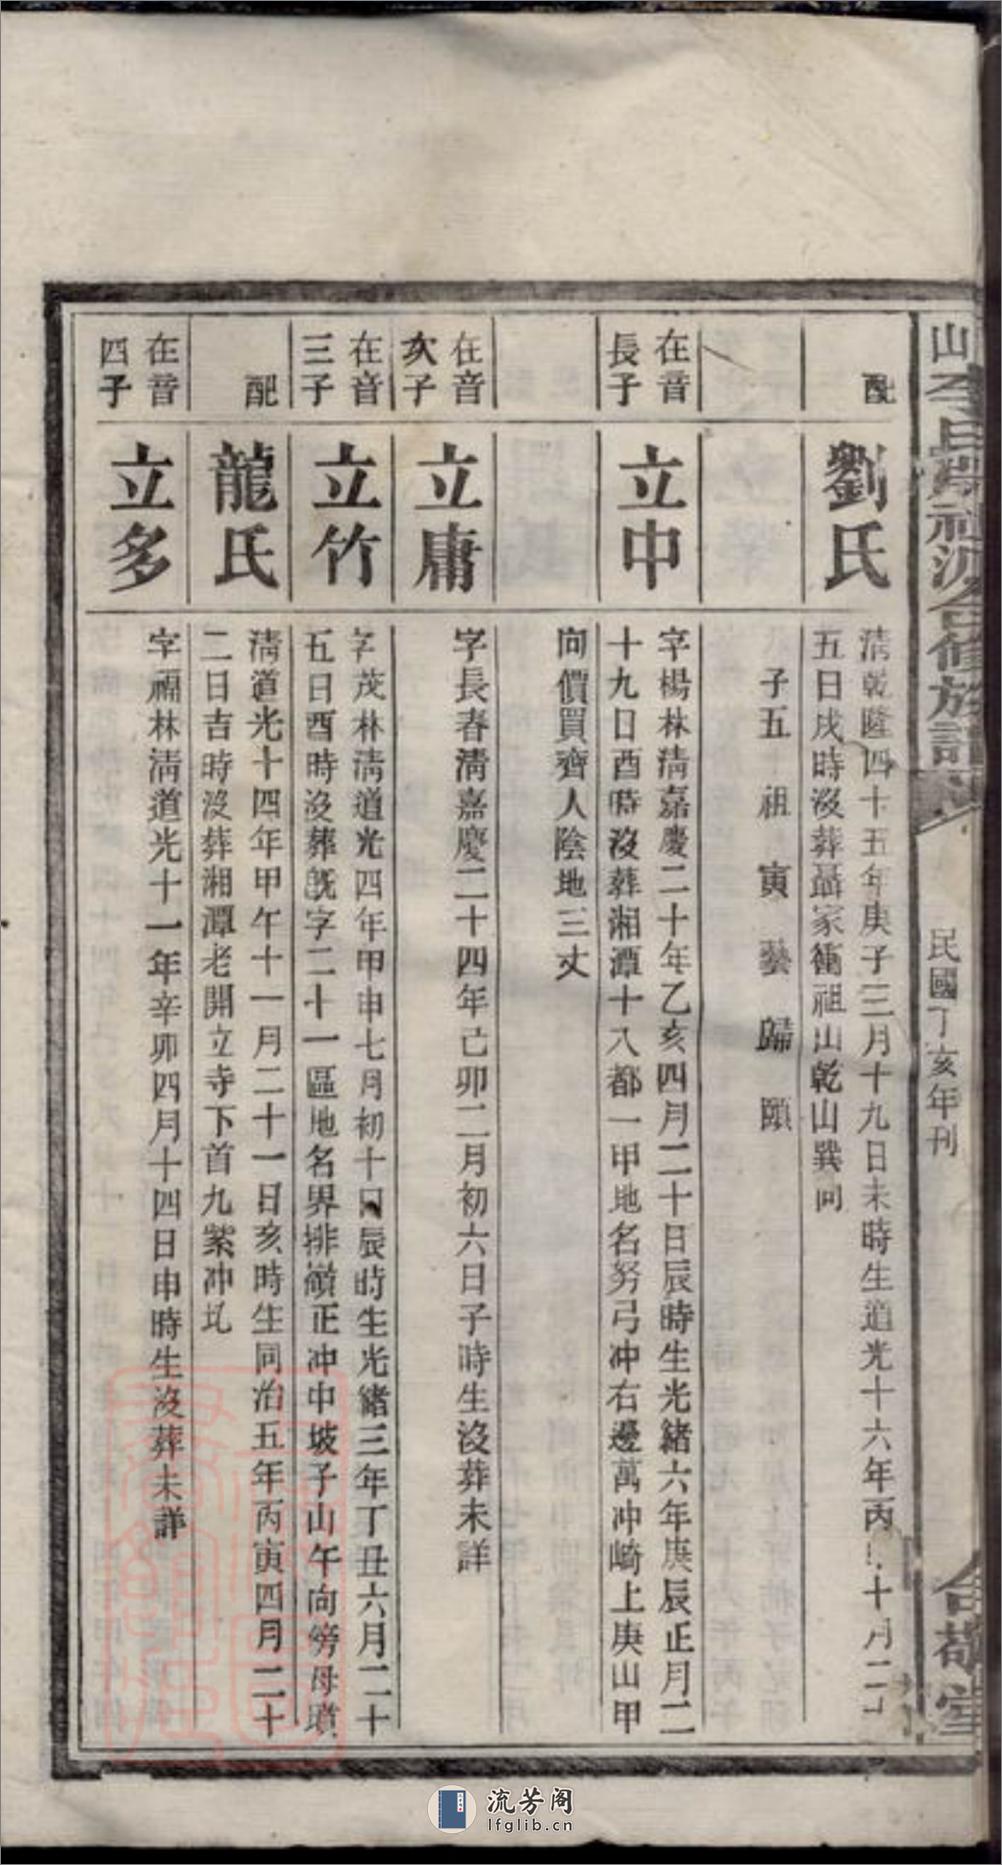 配
劉氏
淸乾隆四十五年庚子三月十九日未時生道光十六年丙
十月二十
五日戌時沒葬聶家衝祖山乾山巽向
子五 祖 寅 藝 歸 頤
在音
長子
立中
字楊林淸嘉慶二十年乙亥四月二十日辰時生光緒六年庚辰正月二
十九日酉時沒葬湘潭十八都一甲地名努弓冲右邊萬冲崎上庚山甲
向價買齊人陰地三丈
在音
次子
立庸
字長春淸嘉慶二十四年己卯二月初六日子時生沒葬未詳
在音
三子
立竹
字茂林淸道光四年甲申七月初十日辰時生光緒三年丁丑六月二十
五日酉時沒葬旣字二十一區地名界排嶺正冲中坡子山午向傍母墳
配
龍氏
淸道光十四年甲午十一月二十一日亥時生同治五年丙寅四月二十
二日吉時沒葬湘潭老開立寺下首九紫冲圠
在音
四子
立多
字福林淸道光十一年辛卯四月十四日申時生沒葬未詳
民國丁亥年刊
流芳阁
lfglib.cn